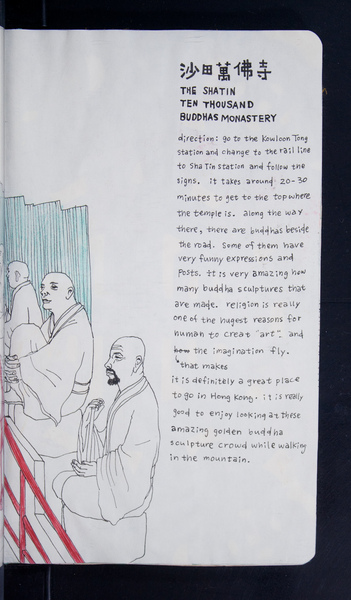 沙田萬佛寺
THE SHATIN
TEN THOUSAND
BUDDHAS MONASTERY
direction: go to the Kowloon Tong
station and change to the rail line
to Sha Tin station and follow the
signs. it takes around 20-30
minutes to get to the top where
the temple is. along the way
there, there are buddhas beside
the road. some of them have
very funny expressions and
posts. it is very amazing how
many buddha sculptures that
are made. religion is really
one of the hugest reasons for
human to creat "art". and
how the imagination fly.
that makes
it is definitely a great place
to go in Hong Kong. it is really
good to enjoy looking at these
amazing golden buddha
sculpture crowd while walking
in the mountain.